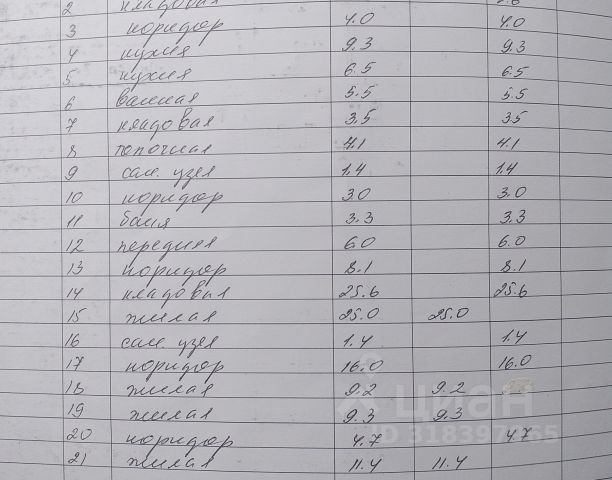 2 кладовая
3 коридор 4.0 4.0
4 кухня 9.3 9.3
5 кухня 6.5 6.5
6 ванная 5.5 5.5
7 кладовая 3.5 3.5
8 топочная 4.1 4.1
9 сан. узел 1.4 1.4
10 коридор 3.0 3.0
11 баня 3.3 3.3
12 передняя 6.0 6.0
13 коридор 8.1 8.1
14 кладовая 25.6 25.6
15 жилая 25.0 25.0
16 сан. узел 1.4 1.4
17 коридор 16.0 16.0
18 жилая 9.2 9.2
19 жилая 9.3 9.3
20 коридор 4.7 4.7
21 жилая 11.4 11.4
циан